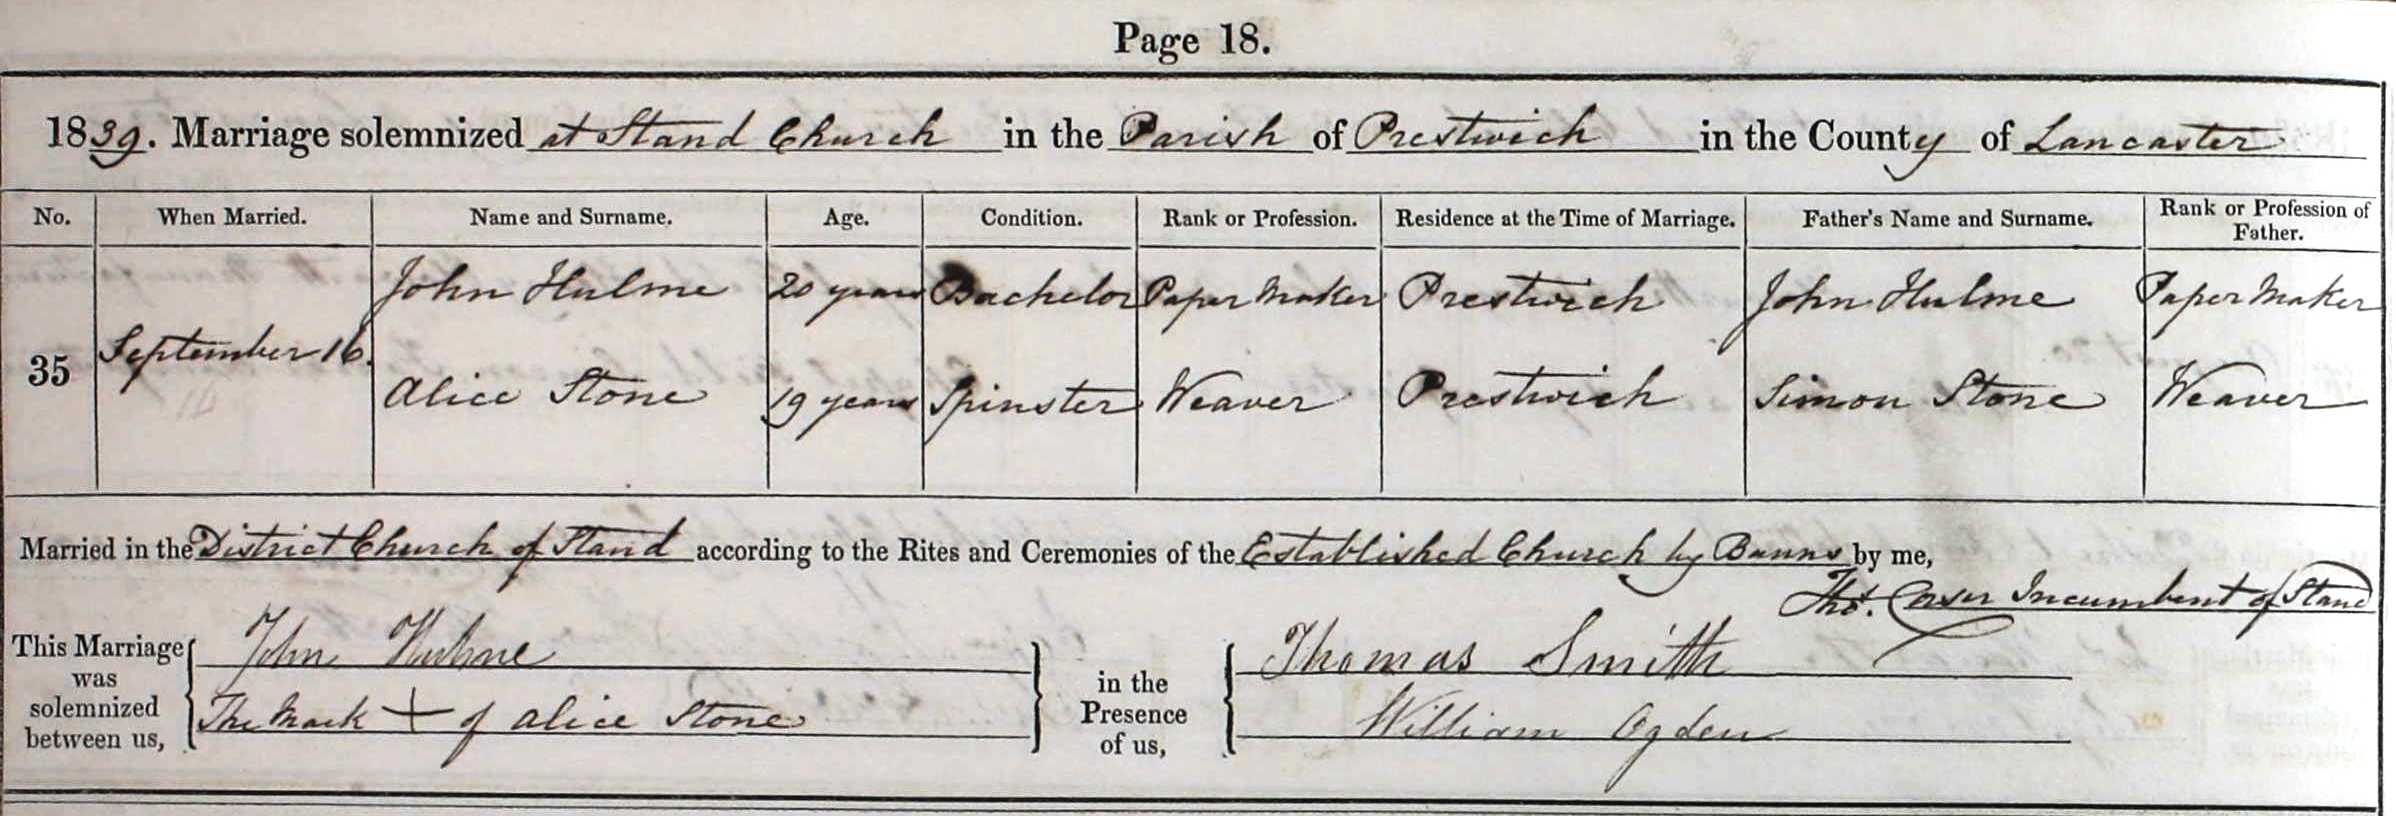 Page 18.
1839. Marriage solemnized at Stand Church in the Parish of Prestwich in the County of Lancaster
No. When Married. Name and Surname. Age. Condition. Rank or Profession. Residence at the Time of Marriage. Father's Name and Surname. Rank or Profession of Father.
John Hulme 20 years Bachelor Paper Maker Prestwich John Hulme Paper Maker
35 September 16.
Alice Stone 19 years Spinster Weaver Prestwich Simon Stone Weaver
16
Married in the District Church of Stand according to the Rites and Ceremonies of the Established Church by Banns by me,
Thos. Corser Incumbent of Stand
This Marriage was solemnized between us, John Hulme in the Presence of us, Thomas Smith
The Mark + of Alice Stone William Ogden